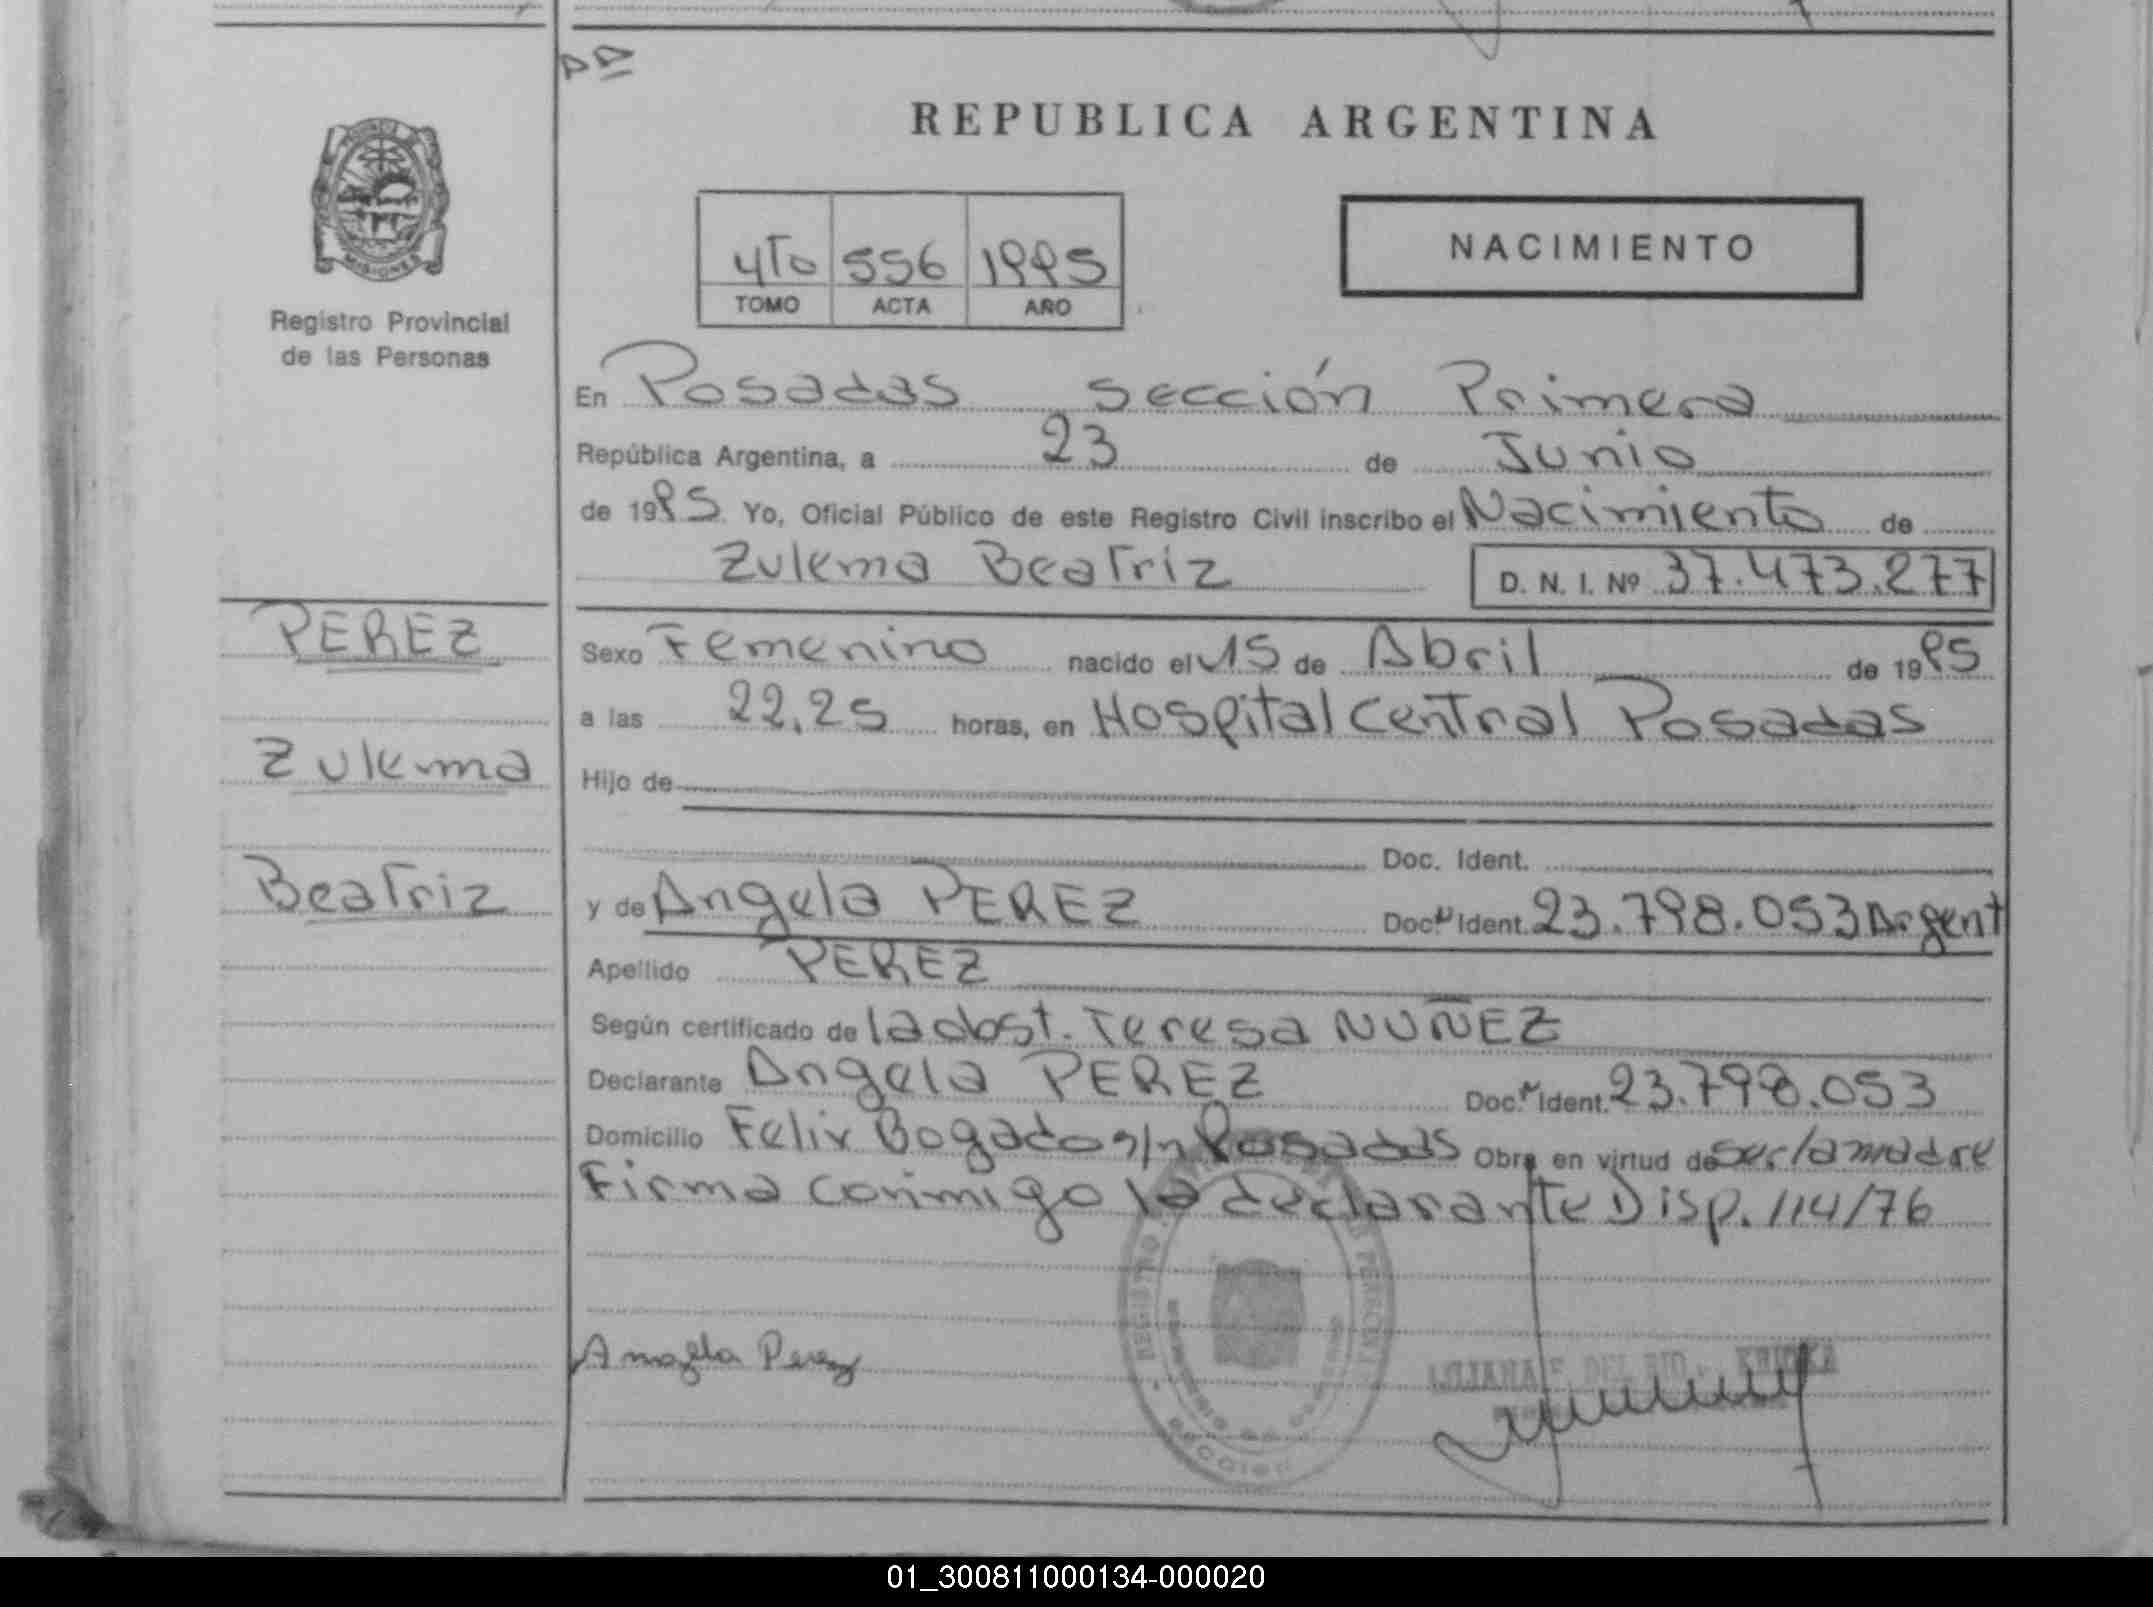 REPUBLICA ARGENTINA
NACIMIENTO
4To 556 1995
TOMO ACTA AÑO
MISIONES
Registro Provincial
de las Personas
En Posadas sección Primera
República Argentina, a 23 de Junio
de 1995. Yo, Oficial Público de este Registro Civil inscribo el Nacimiento de
Zulema Beatriz D. N. I. Nº 37.473.277
PEREZ
Zulema
Beatriz
Sexo Femenino nacido el 15 de Abril de 1995
a las 22,25 horas, en Hospital Central Posadas
Hijo de
Doc. Ident.
y de Angela PEREZ Doc. Ident. 23.798.053 Argent
Apellido PEREZ
Según certificado de la obst. Teresa NUÑEZ
Declarante Angela PEREZ Doc. Ident. 23.798.053
Domicilio Felix Bogado s/n Posadas Obra en virtud de ser la madre
Firma conmigo la declarante Disp. 114/76
Angela Perez
LILIANA F. DEL RIO
01_300811000134-000020